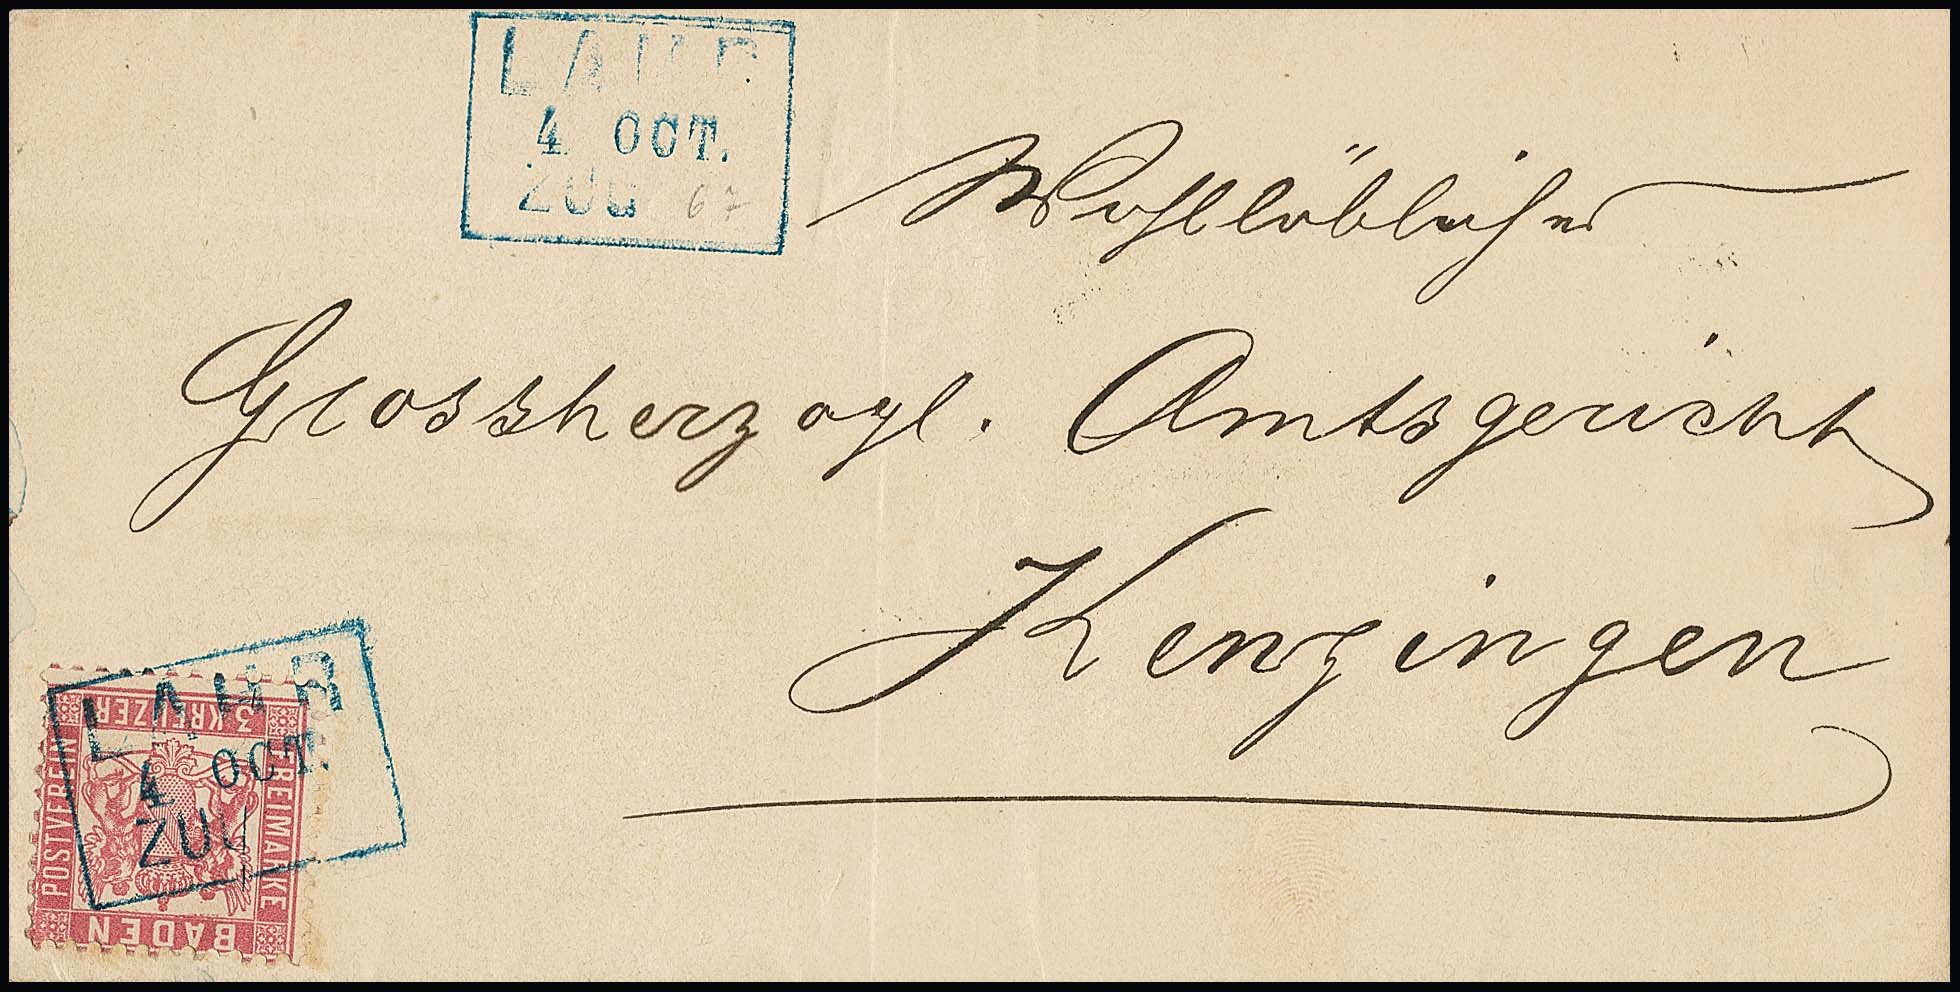 LAHR
4 OCT.
ZUG 67
Wohllöblicher
Grossherzogl. Amtsgericht
Kenzingen
LAHR
4 OCT.
ZUG
3 KREUZER
POSTVEREIN
FREIMARKE
BADEN